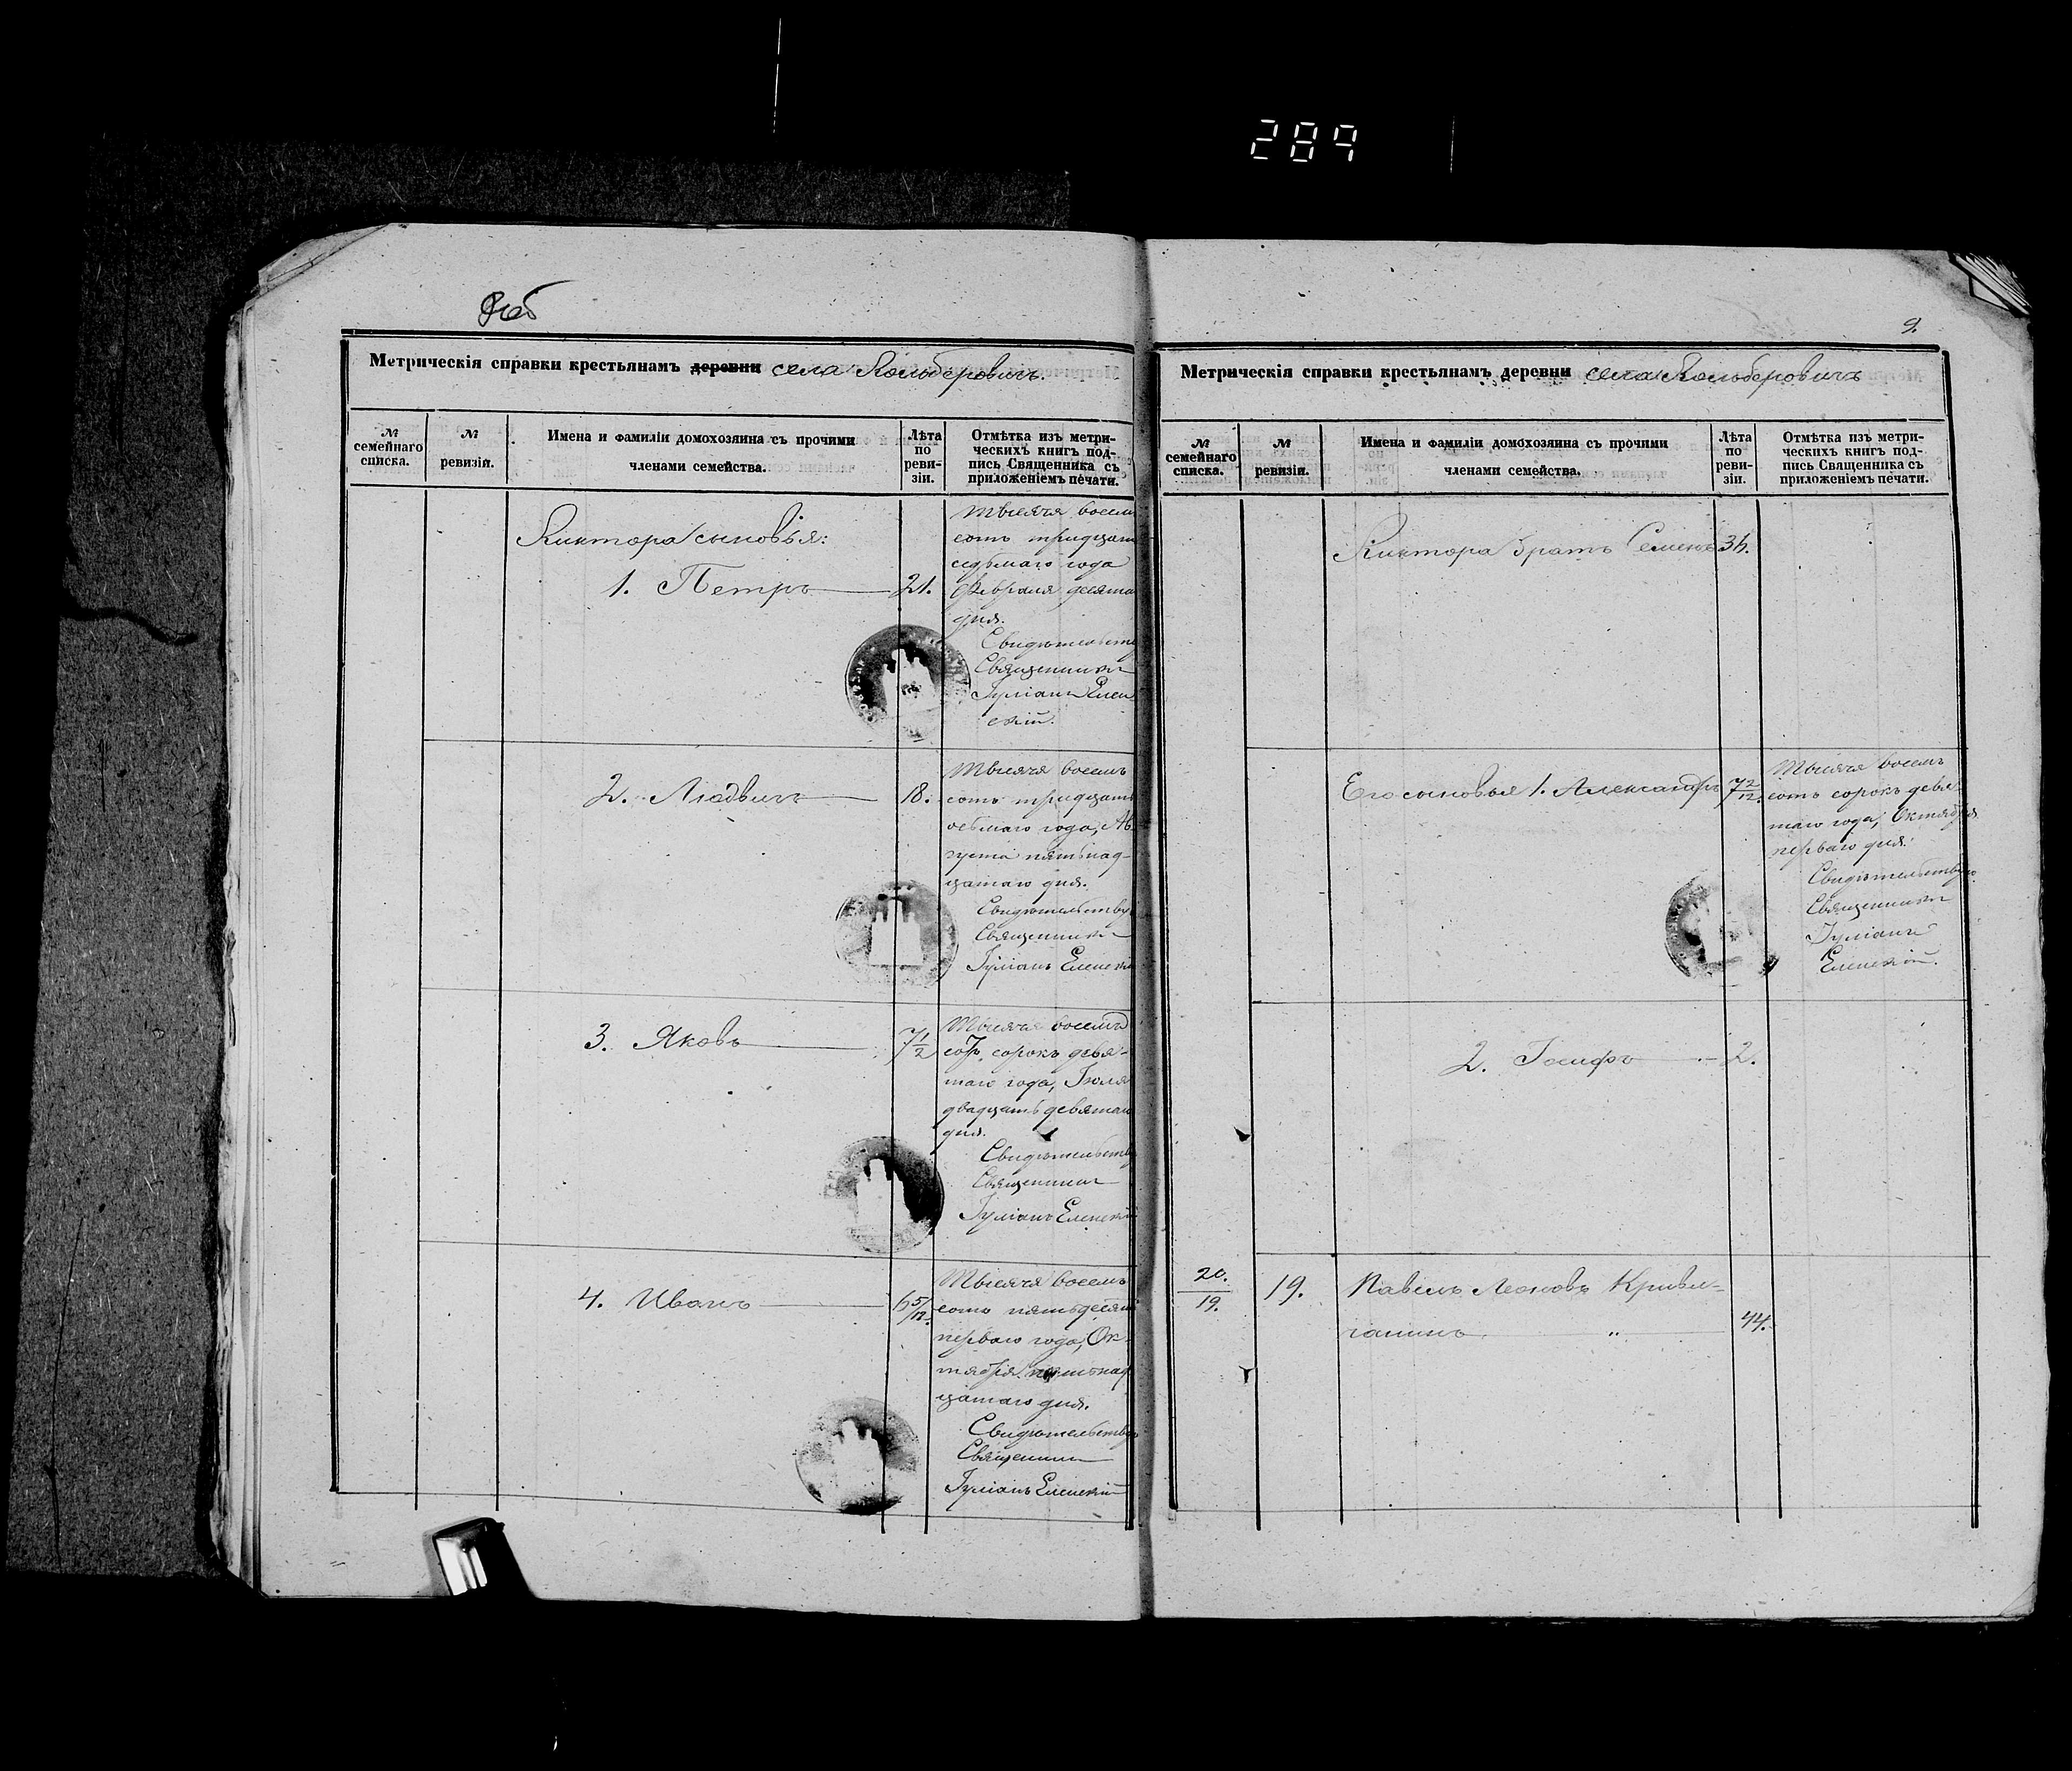 289
Метрическія справки крестьянамъ деревни села Кольберовичъ.
№
семейнаго
списка.
№
ревизіи.
Имена и фамиліи домохозяина съ прочими
членами семейства.
Лѣта
по
реви-
зіи.
Отмѣтка изъ метри-
ческихъ книгъ под-
пись Священника съ
приложеніемъ печати.
Виктора сыновья:
1. Петръ 21.
Тысяча восемь
сотъ тридцать
седьмаго года
Февраля десята
дня.
Свидѣтельств
Священникъ
Іуліанъ Елен
скій.
2. Людвигъ 18.
Тысяча восемь
сотъ тридцать
осьмаго года, Ав
густа пятнад-
цатаго дня.
Свидѣтельству
Священникъ
Іуліанъ Еленскі
3. Яковъ 7 1/2
Тысяча восемь
сотъ сорокъ девя-
таго года, Іюля
двадцать девятаго
дня.
Свидѣтельству
Священникъ
Іуліанъ Еленскій
4. Иванъ 6 5/12.
Тысяча восемь
сотъ пятьдесят
перваго года, Ок-
тября пятнад
цатаго дня.
Свидѣтельству
Священникъ
Іуліанъ Еленскій
9.
Метрическія справки крестьянамъ деревни села Кольберовичъ
№
семейнаго
списка.
№
ревизіи.
Имена и фамиліи домохозяина съ прочими
членами семейства.
Лѣта
по
реви-
зіи.
Отмѣтка изъ метри-
ческихъ книгъ под-
пись Священника съ
приложеніемъ печати.
Виктора братъ Семенъ
Его сыновья 1. Александръ 7 2/12.
Тысяча восемь
сотъ сорокъ девя
таго года, Октября
перваго дня.
Свидѣтельствую
Священникъ
Іуліанъ
Еленскій.
2. Іосифъ 2.
20.
19.
19. Павелъ Леоновъ Кривль-
чанинъ " 44.